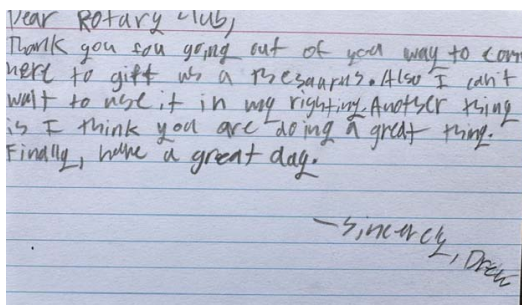 Dear Rotary Club,
Thank you fou going out of you way to com
here to gift us a thesaurus. Also I can't
wait to use it in my righting. Another thing
is I think you are doing a great thing.
Finally, have a great day.
- Sincerely, Drew